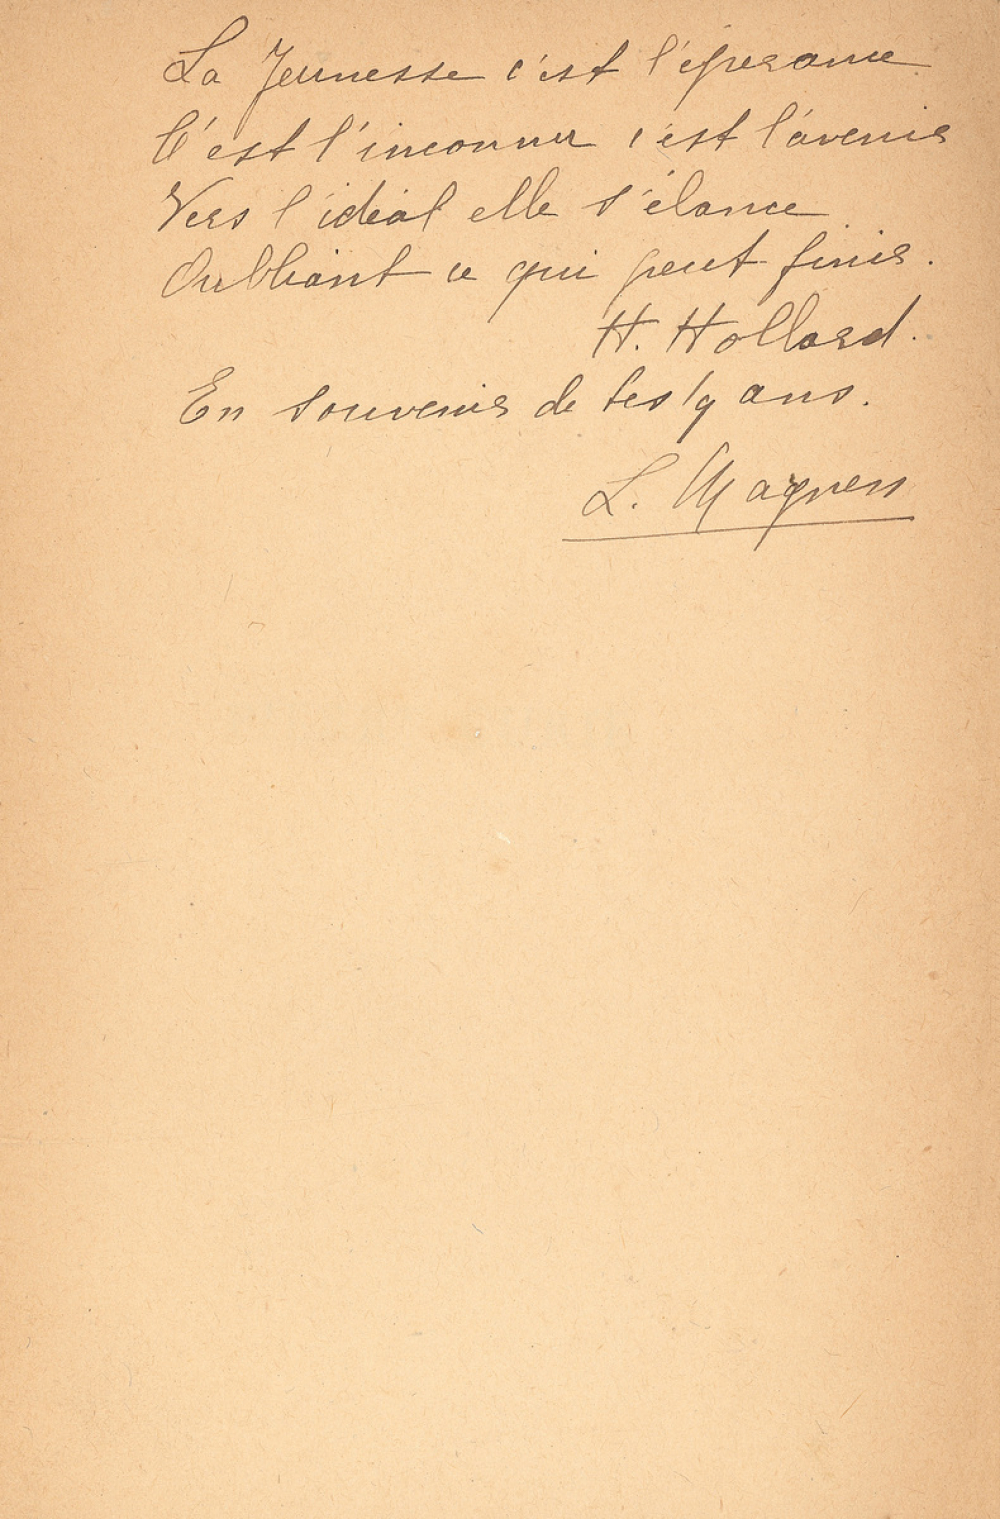 La Jeunesse c'est l'éperance
C'est l'inconnu c'est l'avenir
Vers l'idéal elle s'élance
Oubliant ce qui peut finir.
H. Hollard.
En souvenir de tes 19 ans.
L.